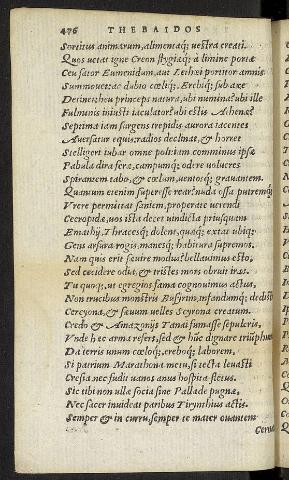 476 THEBAIDOS
Sortitus animarum, alimentaq; uestra creati.
Quos uetat igne Creon stygiaq; a limine portæ
Ceu sator Eumenidum, aut Lethei portitor amnis
Summouet: ac dubio cœliq; Erebiq; sub axe
Detinet: heu princeps natura, ubi numina? ubi ille
Fulminis iniusti iaculator? ubi estis Athenæ?
Septima iam surgens trepidis aurora iacentes
Auersatur equis: radios declinat, & horret
Stelliger iubar omne polus: iam comminus ipsæ
Pabula dira feræ, campumq; odere uolucres
Spirantem tabo, & cœlum, uentosq; grauantem.
Quantum etenim superesse rear? nuda ossa putremq;
Vrere permittat saniem, properate uerendi
Cecropidæ, uos ista decet uindicta priusquam
Emathij, Thracesq; dolent, quæq; extat ubiq;
Gens arsura rogis, manesq; habitura supremos.
Nam quis erit sæuire modus? bellauimus esto,
Sed cecidere odia, & tristes mors obruit iras.
Tu quoq;, ut egregios fama cognouimus actus,
Non trucibus monstris Busirim, infandumq; dedisti
Cercyona, & sæuum uelles Scyrona crematum.
Credo & Amazonijs Tanai fumasse sepulcris,
Vnde hæc arma refers, sed & hũc dignare triũphum
Da terris unum cœloq;, ereboq; laborem,
Si patrium Marathona metu, si tecta leuasti
Cresia, nec fudit uanos anus hospita fletus.
Sic tibi non ullæ socia sine Pallade pugnæ,
Nec sacer inuideat paribus Tirynthius actis.
Semper & in curru, semper te mater ouantem